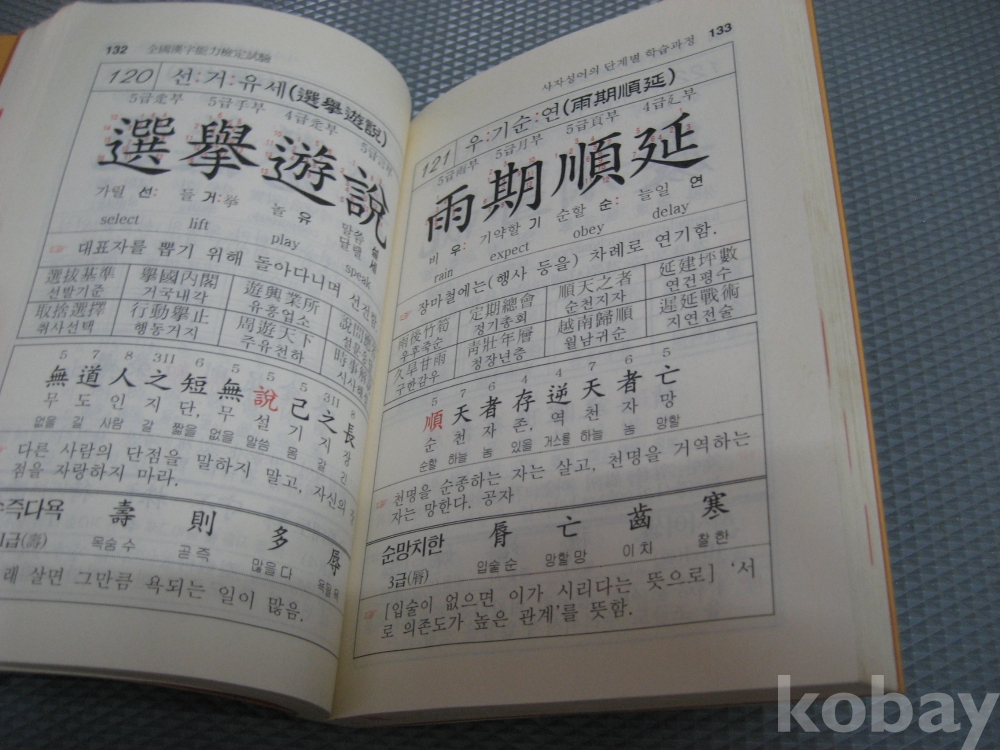 132 全國漢字能力檢定試驗
120 선:거:유세(選擧遊說)
5급辵부 5급手부 4급辵부 5급言부
選擧遊說
가릴 선: 들 거:挙 놀 유 말씀 설
달랠 세
select lift play speak
대표자를 뽑기 위해 돌아다니며
選拔基準 擧國內閣 遊興業所
선발기준 거국내각 유흥업소
取捨選擇 行動擧止 周遊天下
취사선택 행동거지 주유천하
5 7 8 311 6 5 5 5 311 8
無道人之短 無說己之長
무 도 인 지 단, 무 설 기 지 장
없을 길 사람 갈 짧을 없을 말씀 몸 갈 긴
다른 사람의 단점을 말하지 말고, 자신의
점을 자랑하지 마라.
즉다욕 壽 則 多 辱
급(壽) 목숨 수 곧 즉 많을 다 욕될 욕
래 살면 그만큼 욕되는 일이 많음.
사자성어의 단계별 학습과정 133
121 우:기순:연(雨期順延)
5급雨부 5급月부 5급頁부 4급廴부
雨期順延
비 우: 기약할 기 순할 순: 늘일 연
rain expect obey delay
장마철에는(행사 등을) 차례로 연기함.
雨後竹筍 定期總會 順天之者 延建坪數
우후죽순 정기총회 순천지자 연건평수
久旱甘雨 靑壯年層 越南歸順 遲延戰術
구한감우 청장년층 월남귀순 지연전술
5 7 6 4 4 7 6 5
順天者存 逆天者亡
순 천 자 존, 역 천 자 망
순할 하늘 놈 있을 거스를 하늘 놈 망할
천명을 순종하는 자는 살고, 천명을 거역하는
자는 망한다. 공자
순망치한 脣 亡 齒 寒
3급(脣) 입술 순 망할 망 이 치 찰 한
[입술이 없으면 이가 시리다는 뜻으로] ‘서
로 의존도가 높은 관계’를 뜻함.
kobay